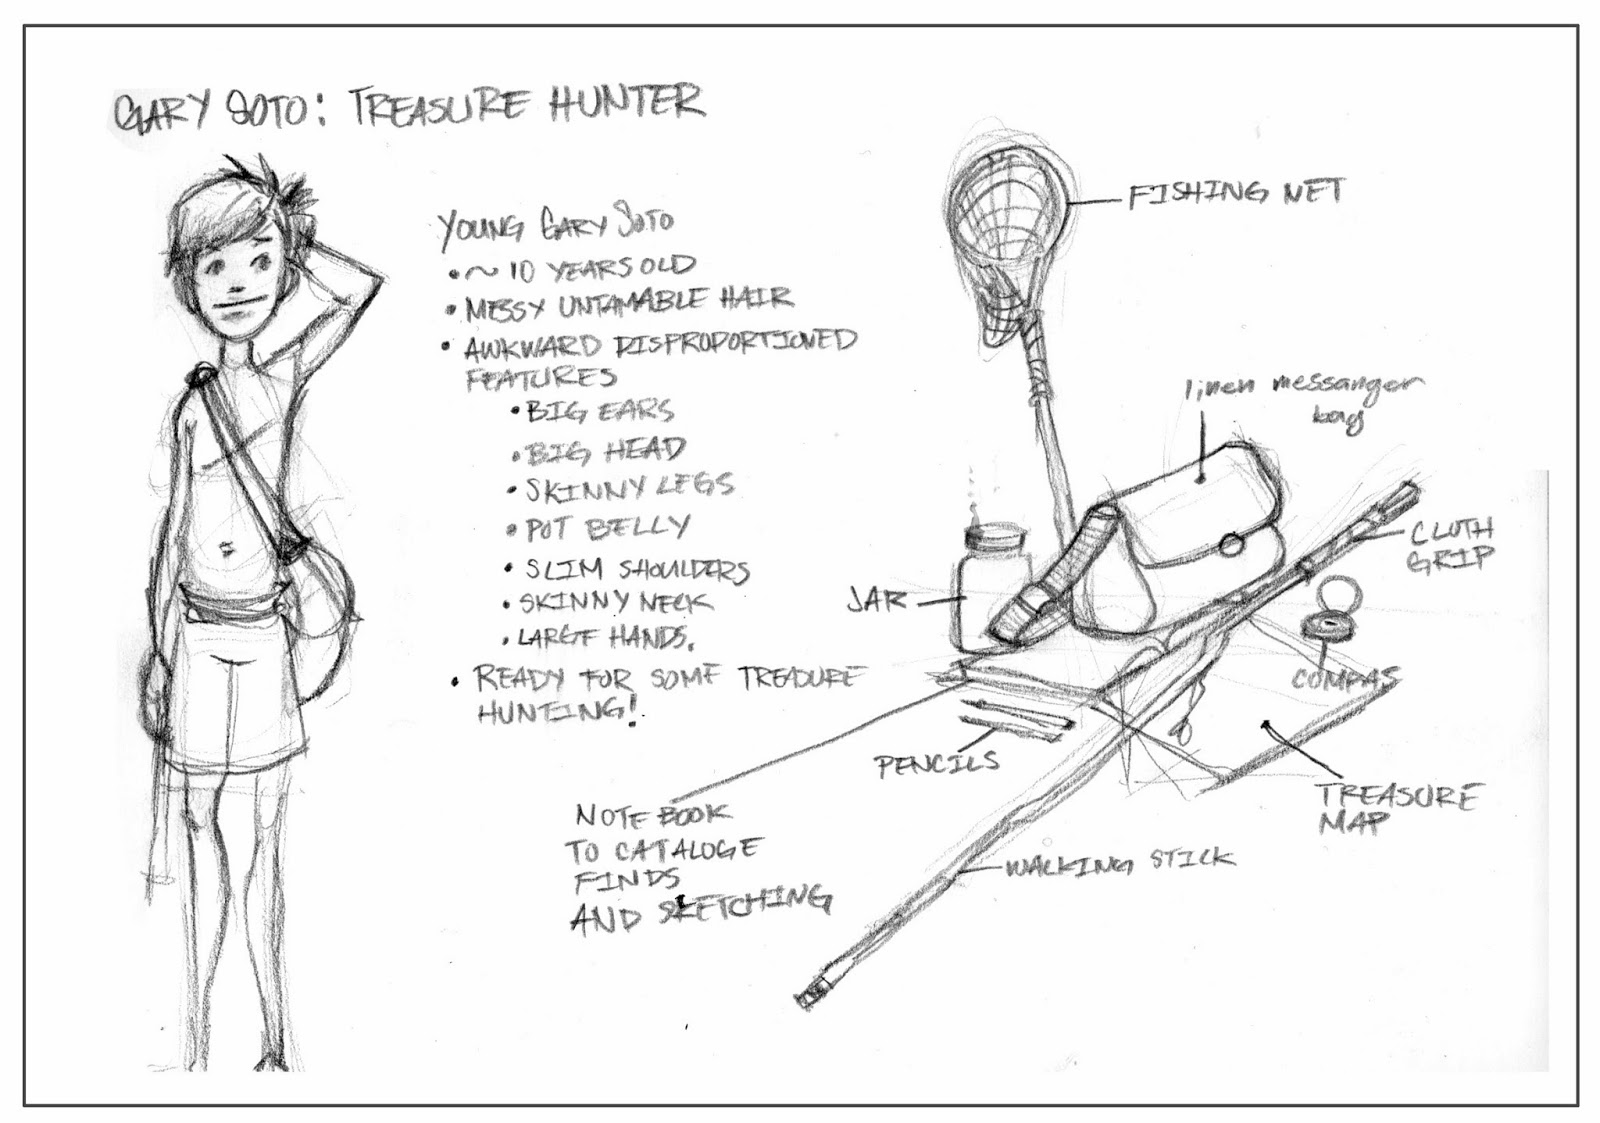 GARY SOTO: TREASURE HUNTER
YOUNG GARY SOTO
• ~ 10 YEARS OLD
• MESSY UNTAMABLE HAIR
• AWKWARD DISPROPORTIONED
FEATURES
• BIG EARS
• BIG HEAD
• SKINNY LEGS
• POT BELLY
• SLIM SHOULDERS
• SKINNY NECK
• LARGE HANDS.
• READY FOR SOME TREASURE
HUNTING!
FISHING NET
linen messanger
bag
CLOTH
GRIP
JAR
COMPAS
PENCILS
TREASURE
MAP
NOTEBOOK
TO CATALOGE
FINDS
AND SKETCHING
WALKING STICK